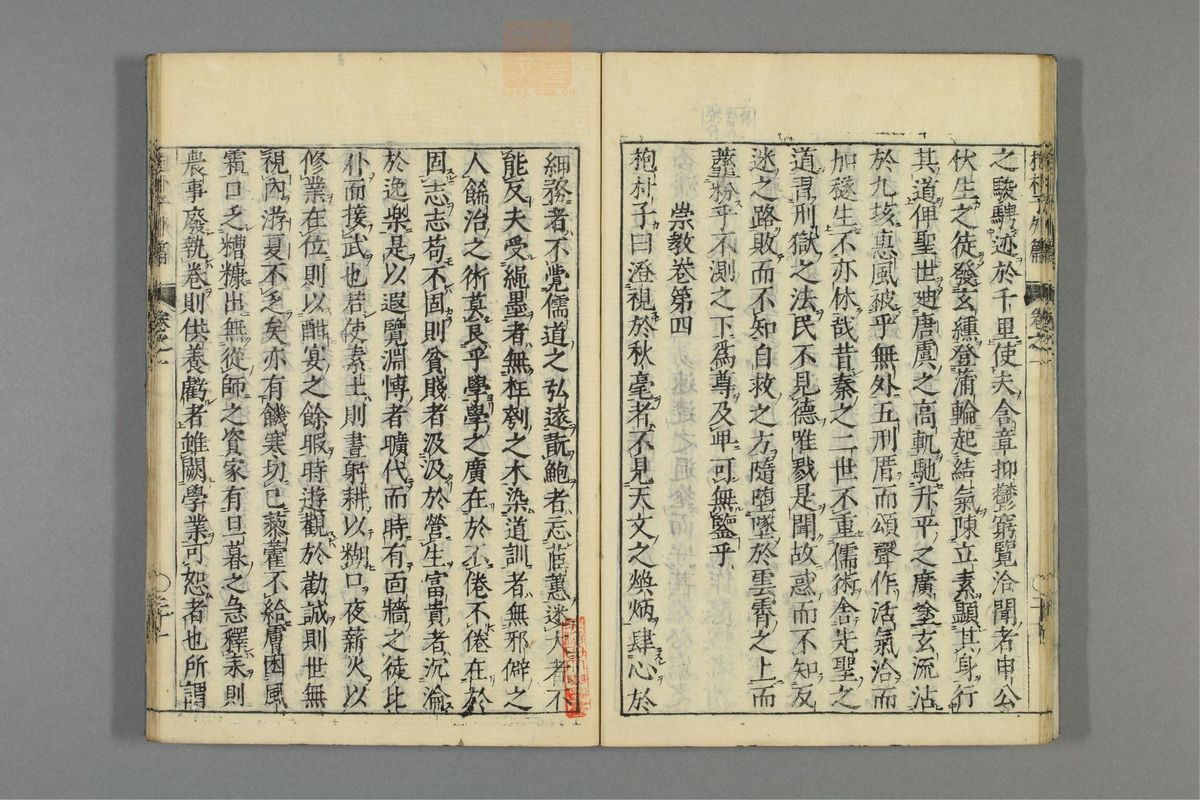 之駿騁迹於千里使夫含章抑鬱窮覽洽聞者申公
伏生之徒發玄纁登蒲輪起結氣陳立素顯其身行
其道俾聖世迪唐虞之高軌馳升平之廣塗玄流沾
於九垓惠風被乎無外五刑厝而頌聲作洽氣洽而
加穟生不亦休哉昔秦之二世不重儒術舍先聖之
道習刑獄之法民不見德唯戮是聞故惑而不知反
迷之路敗而不知自救之方隨墮墜於雲霄之上而
虀粉乎不測之下爲尊及卑可無鑒乎
崇教卷第四
抱朴子曰澄視於秋毫者不見天文之煥炳肆心於
細務者不覺儒道之弘遠翫鮑者忘茝蕙迷大者不
能反夫受繩墨者無枉刳之木染道訓者無邪僻之
人餙治之術莫良乎學學之廣在於不倦不倦在於
固志志苟不固則貧賤者汲汲於營生富貴者沉淪
於逸樂是以遐覽淵博者曠代而時有面牆之徒比
肩而接武也若使素士則晝躬耕以糊口夜薪火以
修業在位則以酣宴之餘暇時遊觀於勸誡則世無
視內游夏不乏矣亦有饑寒切己藜藿不給膚困風
霜口乏糟糠出無從師之資家有旦暮之急釋耒則
農事廢執卷則供養虧者雖闕學業可恕者也所謂
抱朴子外篇
卷之一